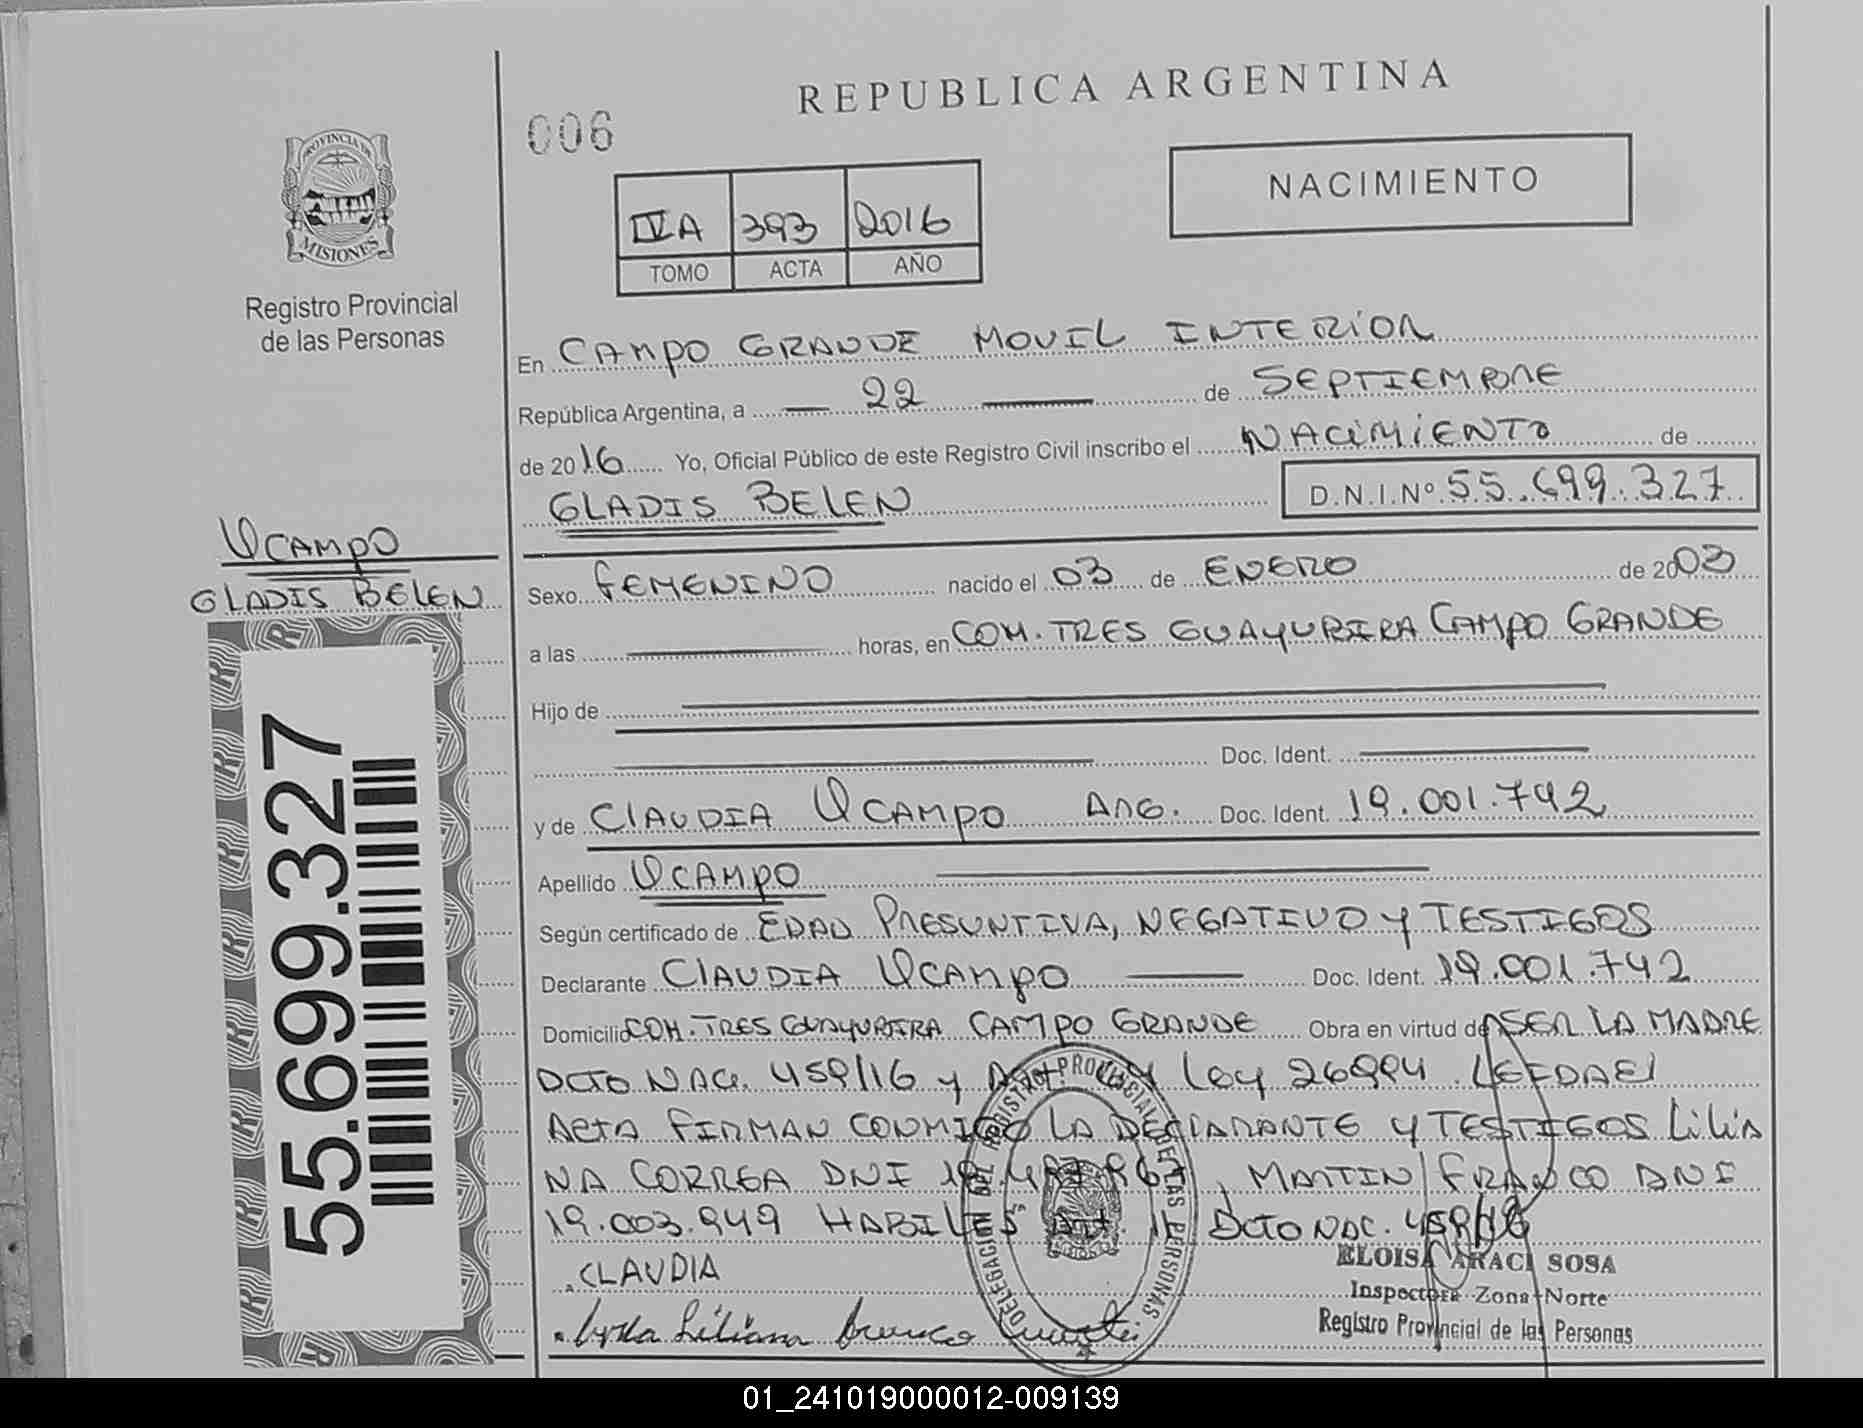 REPUBLICA ARGENTINA
006
NACIMIENTO
IVA 393 2016
TOMO ACTA AÑO
PROVINCIA DE
MISIONES
Registro Provincial
de las Personas
En CAMPO GRANDE MOVIL INTERIOR
República Argentina, a 22 de SEPTIEMBRE
de 2016 Yo, Oficial Público de este Registro Civil inscribo el NACIMIENTO de
GLADIS BELEN D.N.I.Nº 55.699.327
UCAMPO
GLADIS BELEN
55.699.327
Sexo FEMENINO nacido el 03 de ENERO de 2003
a las horas, en COM. TRES GUAYUBIRA CAMPO GRANDE
Hijo de
Doc. Ident.
y de CLAUDIA UCAMPO ARG. Doc. Ident. 19.001.742
Apellido UCAMPO
Según certificado de EDAD PRESUNTIVA, NEGATIVO Y TESTIGOS
Declarante CLAUDIA UCAMPO Doc. Ident. 19.001.742
Domicilio COM. TRES GUAYUBIRA CAMPO GRANDE Obra en virtud de SER LA MADRE
DCTO NAC. 459/16 y Ley 26994. LEIDA EL
ACTA FIRMAN CONMIGO LA DECLARANTE Y TESTIGOS LILIA
NA CORREA DNI , MARTIN FRANCO DNI
19.003.949 HABILES Art. 11 DCTO NAC. 459/16
DELEGACION DEL REGISTRO PROVINCIAL DE LAS PERSONAS
CLAUDIA
ELOISA ARACI SOSA
Inspectora Zona Norte
Registro Provincial de las Personas
Liliana
01_241019000012-009139